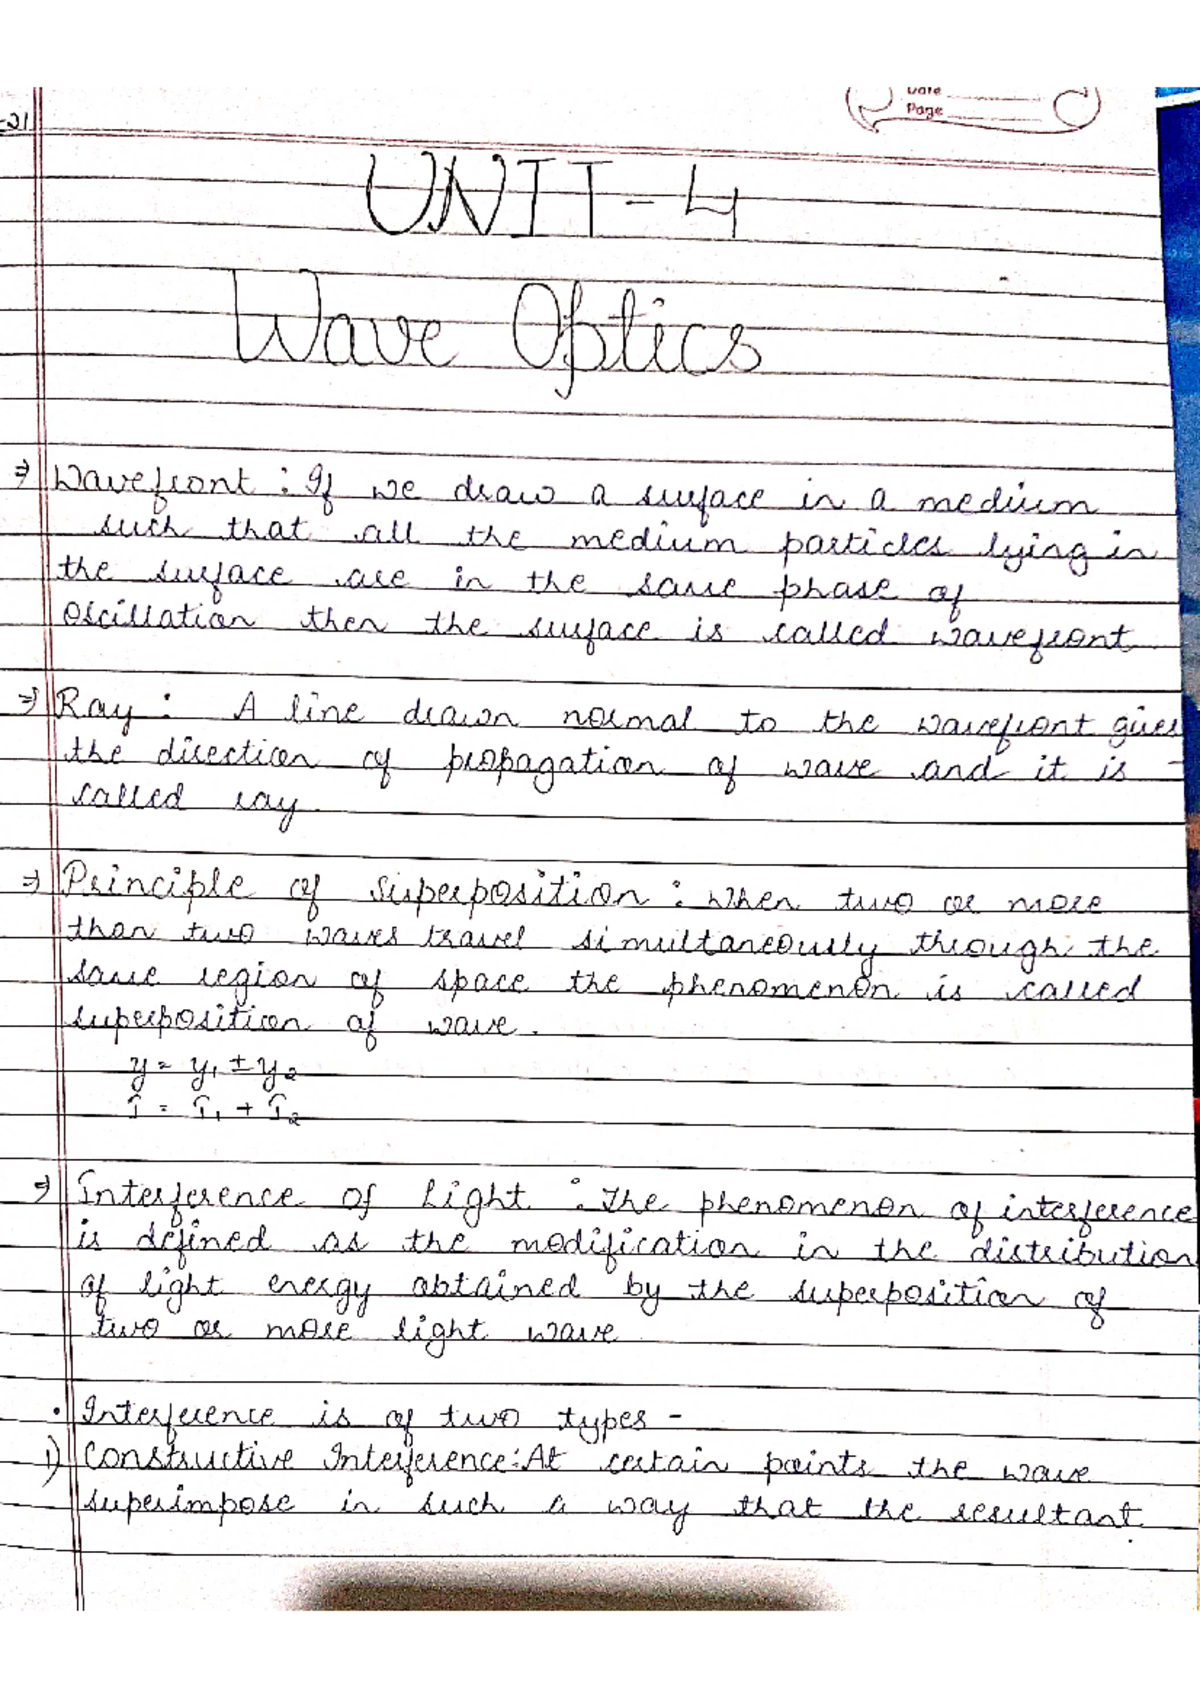 Date
Page
-21
UNIT-4
Wave Optics
⇒ Wavefront : If we draw a surface in a medium
such that all the medium particles lying in
the surface are in the same phase of
oscillation then the surface is called wavefront
⇒ Ray : A line drawn normal to the wavefront gives
the direction of propagation of wave and it is -
called ray.
⇒ Principle of Superposition : When two or more
than two waves travel simultaneously through the
same region of space the phenomenon is called
superposition of wave.
y = y₁ ± y₂
I = I₁ + I₂
⇒ Interference of Light : The phenomenon of interference
is defined as the modification in the distribution
of light energy obtained by the superposition of
two or more light wave
• Interference is of two types -
1) Constructive Interference : At certain points the wave
superimpose in such a way that the resultant